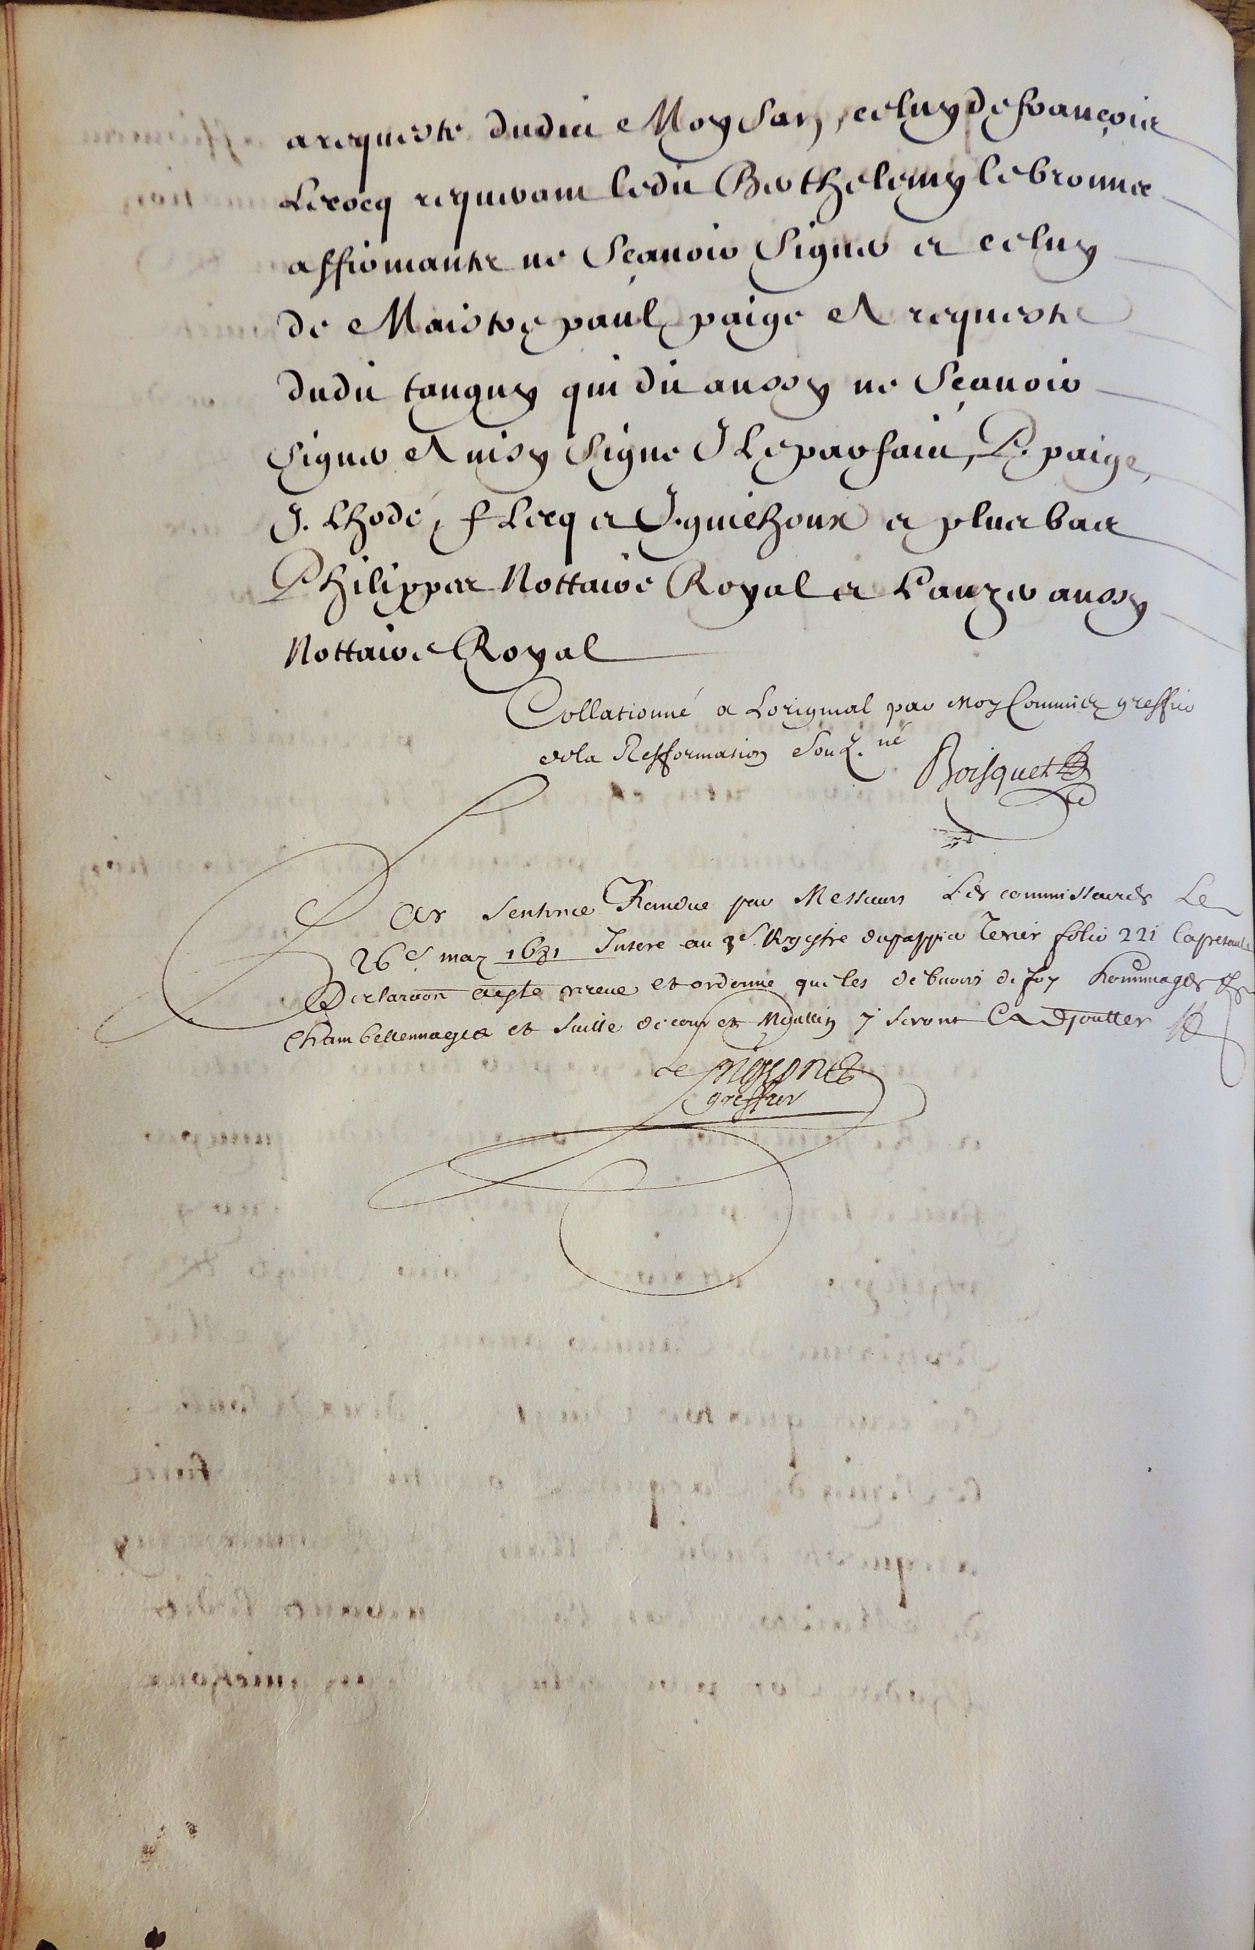 a requeste dudit Moysan, celuy de françois
Lecocq requerant ledit Berthelemy lebronnec
affirmants ne Sçauoir Signer et celuy
de Maistre paul paige A requeste
dudit tanguy qui dit aussy ne Sçauoir
Signer Ainsy Signe J Leparfait, P. paige,
J. Lhodé, f Lecq et J. guiehoux et plus bas
Philippes Nottaire Royal et Lauzer aussy
Nottaire Royal
Collationné a Loriginal par Moy Commis greffier
de la Refformation Souz.né
Boisquet
Par Sentence Randue par Messieurs Les commissaires Le
26e may 1681 Inseré au 3e Registre du pappier Terier folio 221 la presante
Declaraon a esté receue et ordonné que les debuoirs de foy hommages
Chambellennages et Suitte de cour et Moullin y seront Adjoutter
greffier